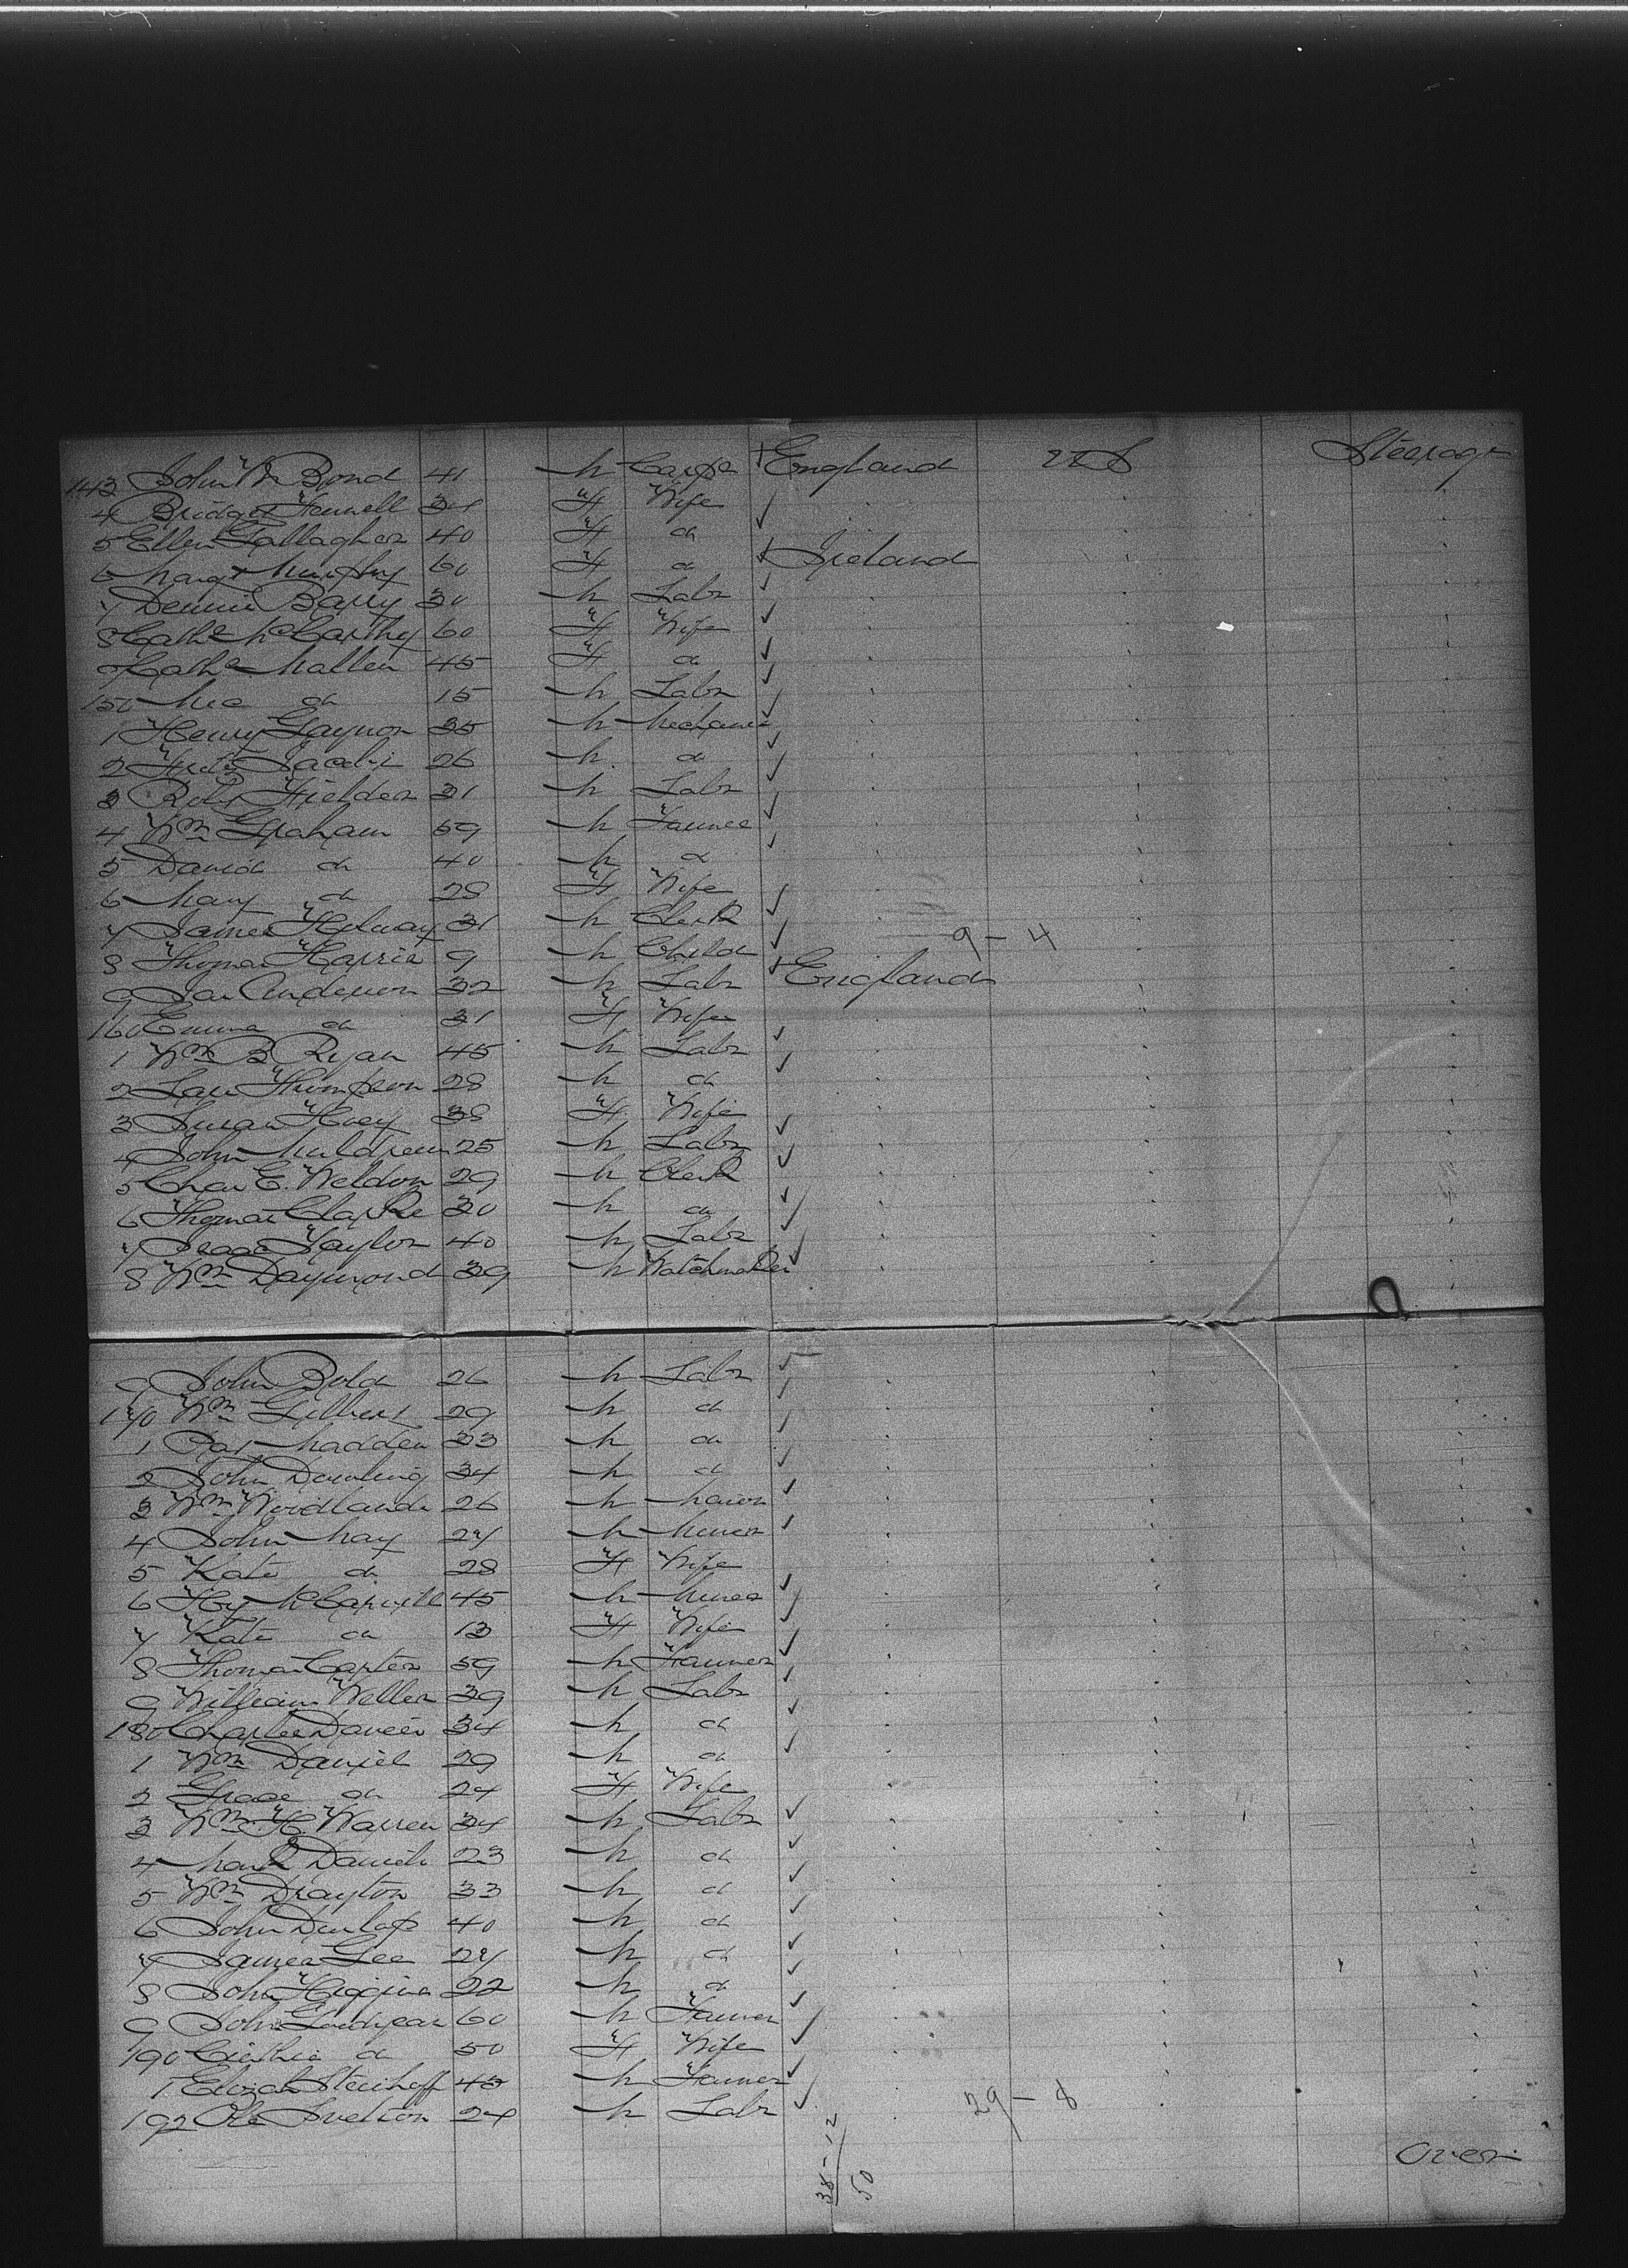 143 John W Bond 41 M Carpr England U S Steerage
4 Bridget Fennell 34 F Wife
5 Ellen Gallagher 40 F do
6 Margt Murphy 60 F do Ireland
7 Dennis Barry 30 M Labr
8 Cathe McCarthy 60 F Wife
9 Cathe Mallen 45 F do
150 Mic do 15 M Labr
1 Henry Gaynor 35 M Mechanic
2 Fritz Jacobi 26 M do
3 Robt Fielder 31 M Labr
4 Wm Graham 59 M Farmer
5 David do 40 M do
6 Mary do 28 F Wife
7 James 31 M Clerk
8 Thomas Harris 9 M Child 9 - 4
9 Jas Anderson 32 M Labr England
160 Emma do 31 F Wife
1 Wm B Ryan 45 M Labr
2 Thompson 28 M do
3 Susan Hoey 38 F Wife
4 John Muldrew 25 M Labr
5 Chas E. Weldon 29 M Clerk
6 Thomas Clarke 30 M do
7 Isaac Taylor 40 M Labr
8 Wm Daymond 39 M Watchmaker
9 John Bold 26 M Labr
170 Wm Gilbert 29 M do
1 Pat Madden 33 M do
2 John Dowling 34 M do
3 Wm Woodlands 26 M Mason
4 John May 27 M Miner
5 Kate do 28 F Wife
6 Hy 45 M Miner
7 Kate do 13 F Wife
8 Thomas Carter 59 M Farmer
9 William Weller 39 M Labr
180 Charles Davies 34 M do
1 Wm Daniel 29 M do
2 Grace do 24 F Wife
3 Wm H. Warren 34 M Labr
4 Mark Daniels 23 M do
5 Wm Drayton 33 M do
6 John Dunlap 40 M do
7 James Lee 27 M do
8 John Higgins 22 M do
9 John 60 M Farmer
190 Cinthia do 50 F Wife
1 Elizah Steinhoff 45 M Farmer
192 Ole 24 M Labr 29 - 8
38 - 12
50
Over